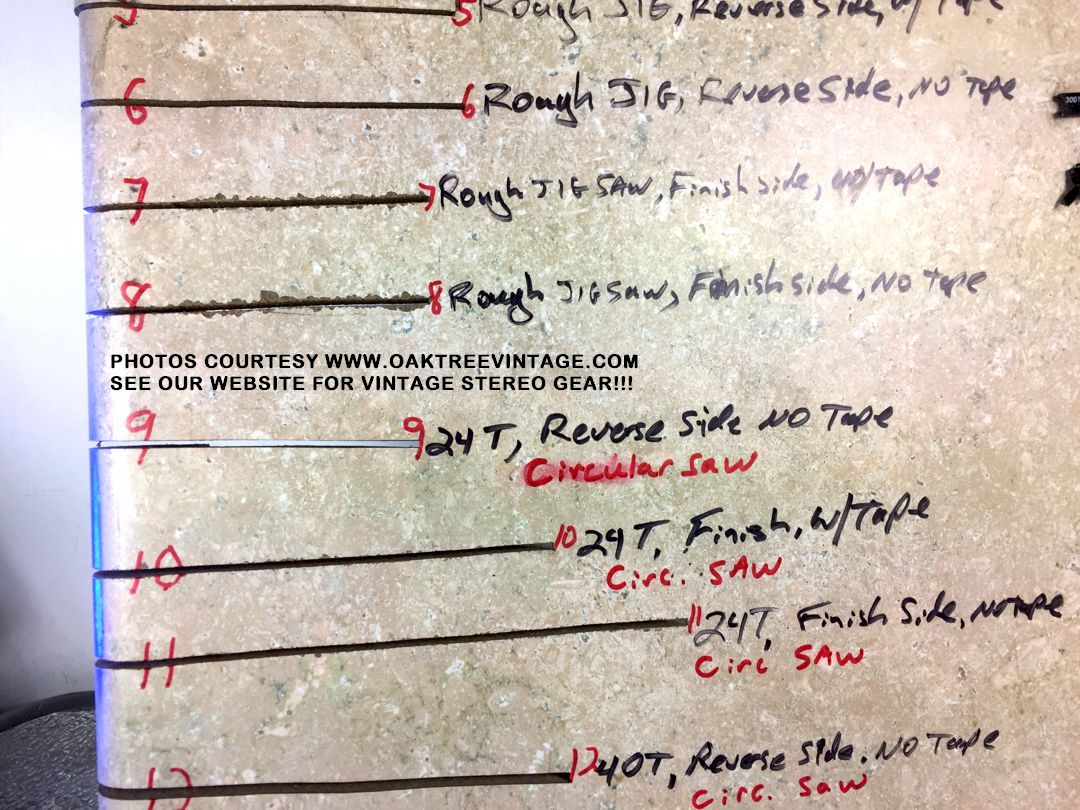 5 5 Rough JIG, Reverse Side, w/ Tape
6 6 Rough JIG, Reverse Side, NO Tape
300
7 7 Rough JIG SAW, Finish side, w/tape
8 8 Rough JIG Saw, Finish side, NO Tape
PHOTOS COURTESY WWW.OAKTREEVINTAGE.COM
SEE OUR WEBSITE FOR VINTAGE STEREO GEAR!!!
9 9 24 T, Reverse Side NO Tape
Circular Saw
10 10 24 T, Finish, w/Tape
Circ. SAW
11 11 24T, Finish Side, NO TAPE
Circ SAW
12 12 40T, Reverse Side, NO Tape
Circ. Saw